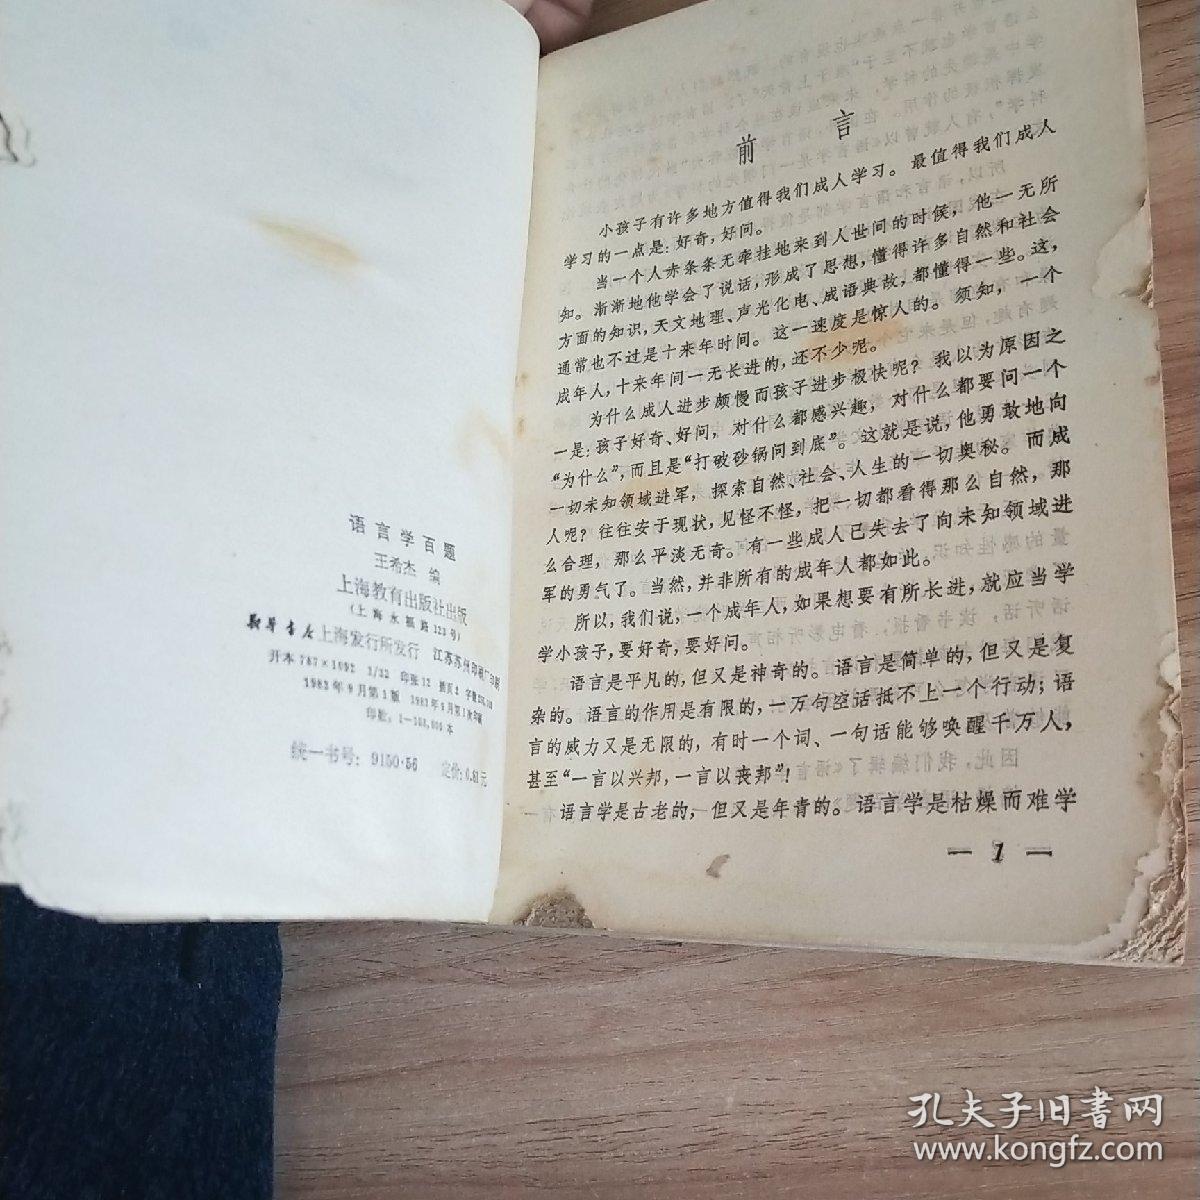 语言学百题
王希杰 编
上海教育出版社出版
(上海永福路123号)
新华书店上海发行所发行 江苏苏州印刷厂印刷
开本 787×1092 1/32 印张 12 插页 2
1983年9月第1版 1983年9月第1次印刷
统一书号:9150·56 定价:0.81元
前言
小孩子有许多地方值得我们成人学习。最值得我们成人
学习的一点是:好奇,好问。
当一个人赤条条无牵挂地来到人世间的时候,他一无所
知。渐渐地他学会了说话,形成了思想,懂得许多自然和社会
方面的知识,天文地理、声光化电、成语典故,都懂得一些。这,
通常也不过是十来年时间。这一速度是惊人的。须知,一个
成年人,十来年间一无长进的,还不少呢。
为什么成人进步颇慢而孩子进步极快呢?我以为原因之
一是:孩子好奇、好问,对什么都感兴趣,对什么都要问一个
“为什么”,而且是“打破砂锅问到底”。这就是说,他勇敢地向
一切未知领域进军,探索自然、社会、人生的一切奥秘。而成
人呢?往往安于现状,见怪不怪,把一切都看得那么自然,那
么合理,那么平淡无奇。有一些成人已失去了向未知领域进
军的勇气了。当然,并非所有的成年人都如此。
所以,我们说,一个成年人,如果想要有所长进,就应当学
学小孩子,要好奇,要好问。
语言是平凡的,但又是神奇的。语言是简单的,但又是复
杂的。语言的作用是有限的,一万句空话抵不上一个行动;语
言的威力又是无限的,有时一个词、一句话能够唤醒千万人,
甚至“一言以兴邦,一言以丧邦”!
语言学是古老的,但又是年青的。语言学是枯燥而难学
— 1 —
孔夫子旧书网
www.kongfz.com